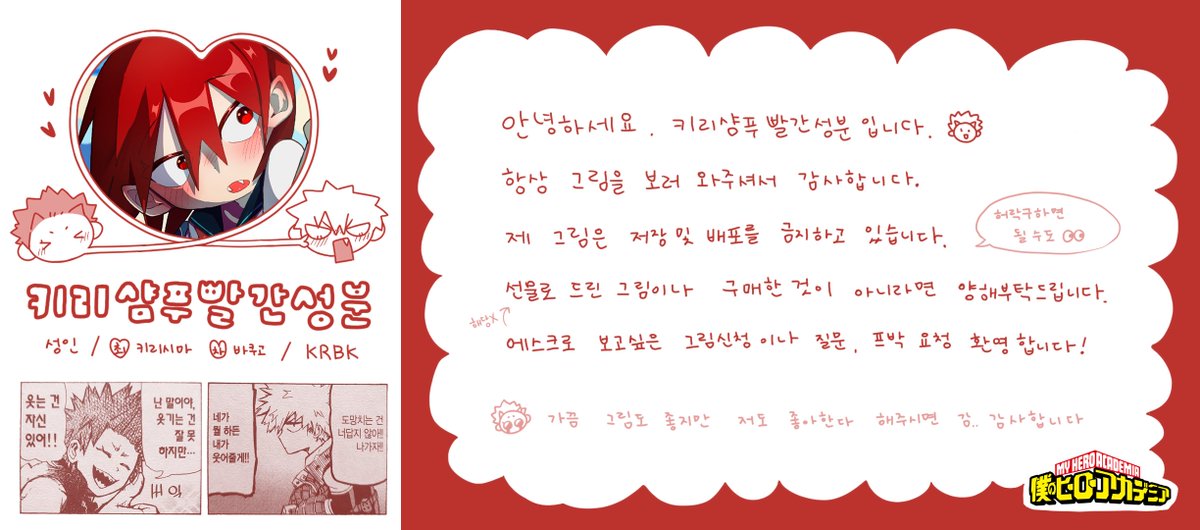 키리샴푸빨간성분
성인 / 최 키리시마 차 바쿠고 / KRBK
웃는 건
자신
있어!!
난 말이야,
웃기는 건
잘 못
하지만…
네가
뭘 하든
내가
웃어줄게!!
도망치는 건
너답지 않아!!
나가자!!
안녕하세요. 키리샴푸빨간성분입니다.
항상 그림을 보러 와주셔서 감사합니다.
제 그림은 저장 및 배포를 금지하고 있습니다.
허락구하면
될 수도
선물로 드린 그림이나 구매한 것이 아니라면 양해부탁드립니다.
해당X
에스크로 보고싶은 그림신청이나 질문, 프박 요청 환영합니다!
가끔 그림도 좋지만 저도 좋아한다 해주시면 감.. 감사합니다
MY HERO ACADEMIA
僕のヒーローアカデミア